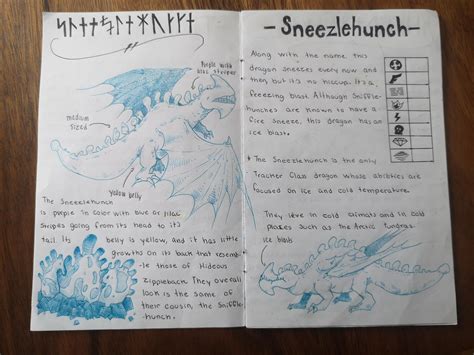 Purple with
blue striper
medium
sized
Yellow belly
The Sneezelehunch
is purple in color with blue or lilac
stripes going from its head to it's
tail. Its belly is yellow, and it has little
growths on its back that resemb-
le those of Hideous
Zippleback. They overall
look is the same of
their cousin, the Sniffle-
hunch.
- Sneezlehunch -
Along with the name this
dragon sneezes every now and
then but it's no hiccup. It's a
freezing blast. Although Sniffle-
hunches are known to have a
fire sneeze, this dragon has an
ice blast.
* The Sneezlehunch is the only
Tracker Class dragon whose abilities are
focused on ice and cold temperature.
They leve in cold climats and in cold
places such as the Arctic Tundras.
Ice blasts